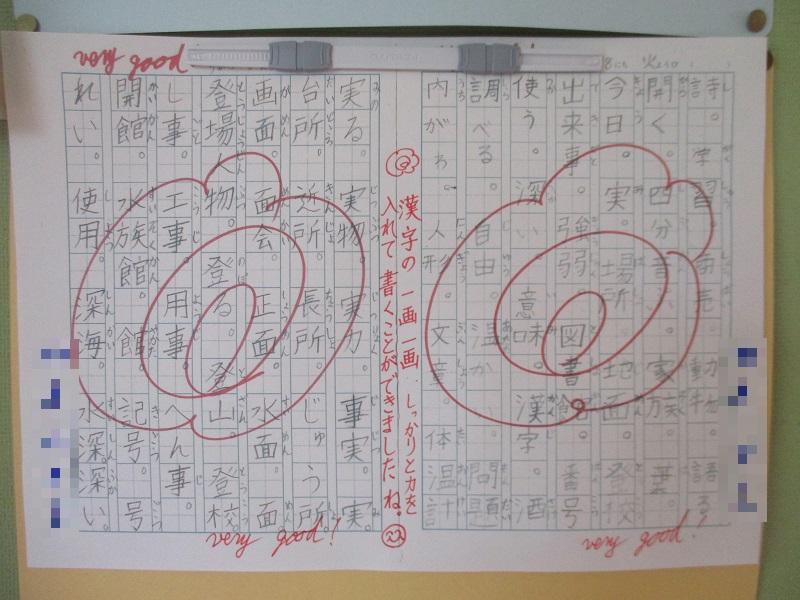 very good
詩。学習。商売。動物。語る。
開く。四分音。家族。葉
今日。実。場所。地面。登校
出来事。強弱。図書館。番号
使う。深い。意味。漢字。酒
調べる。自由。温か。問題
内がわ。人形。文章。体温計
漢字の一画一画しっかりと力を
入れて書くことができましたね。
実る。実物。実力。事実。実
台所。近所。長所。じゅう所。
画面。面会。正面。水面。面
登場人物。登る。登山。登校
し事。工事。用事。へん事。
開館。水族館。館。記号。号
れい。使用。深海。水深。深い。
very good!
very good!